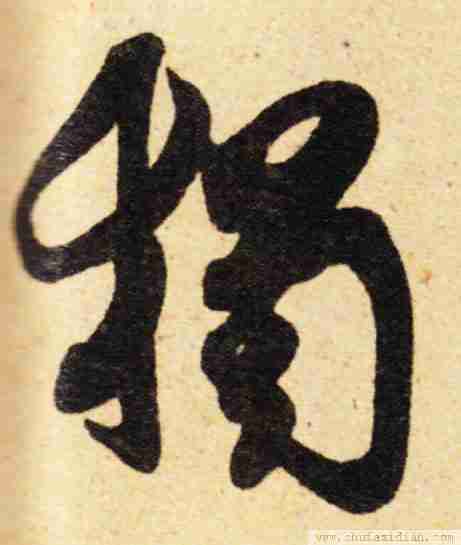 獨
www.shufazidian.com